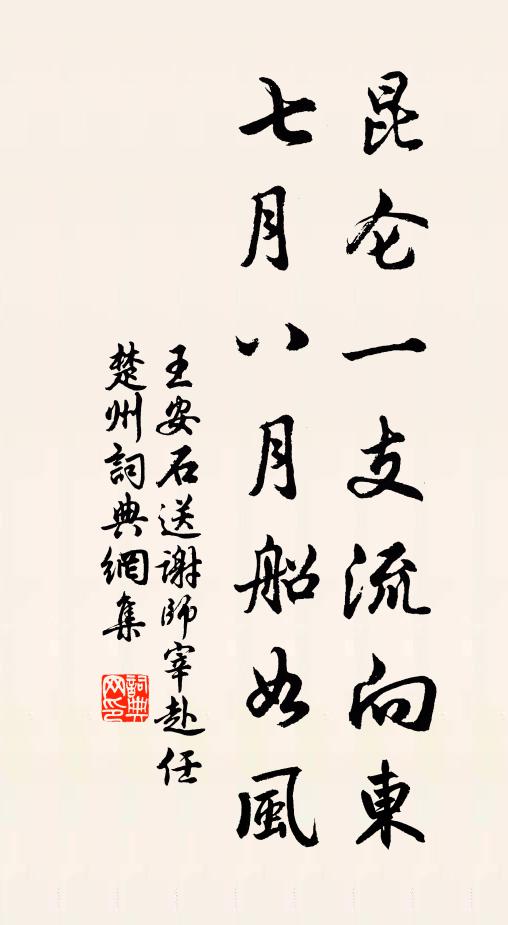 昆仑一支流向東
七月八月船如風
王安石送謝師宰赴任
楚州詞典網集
詞典网印